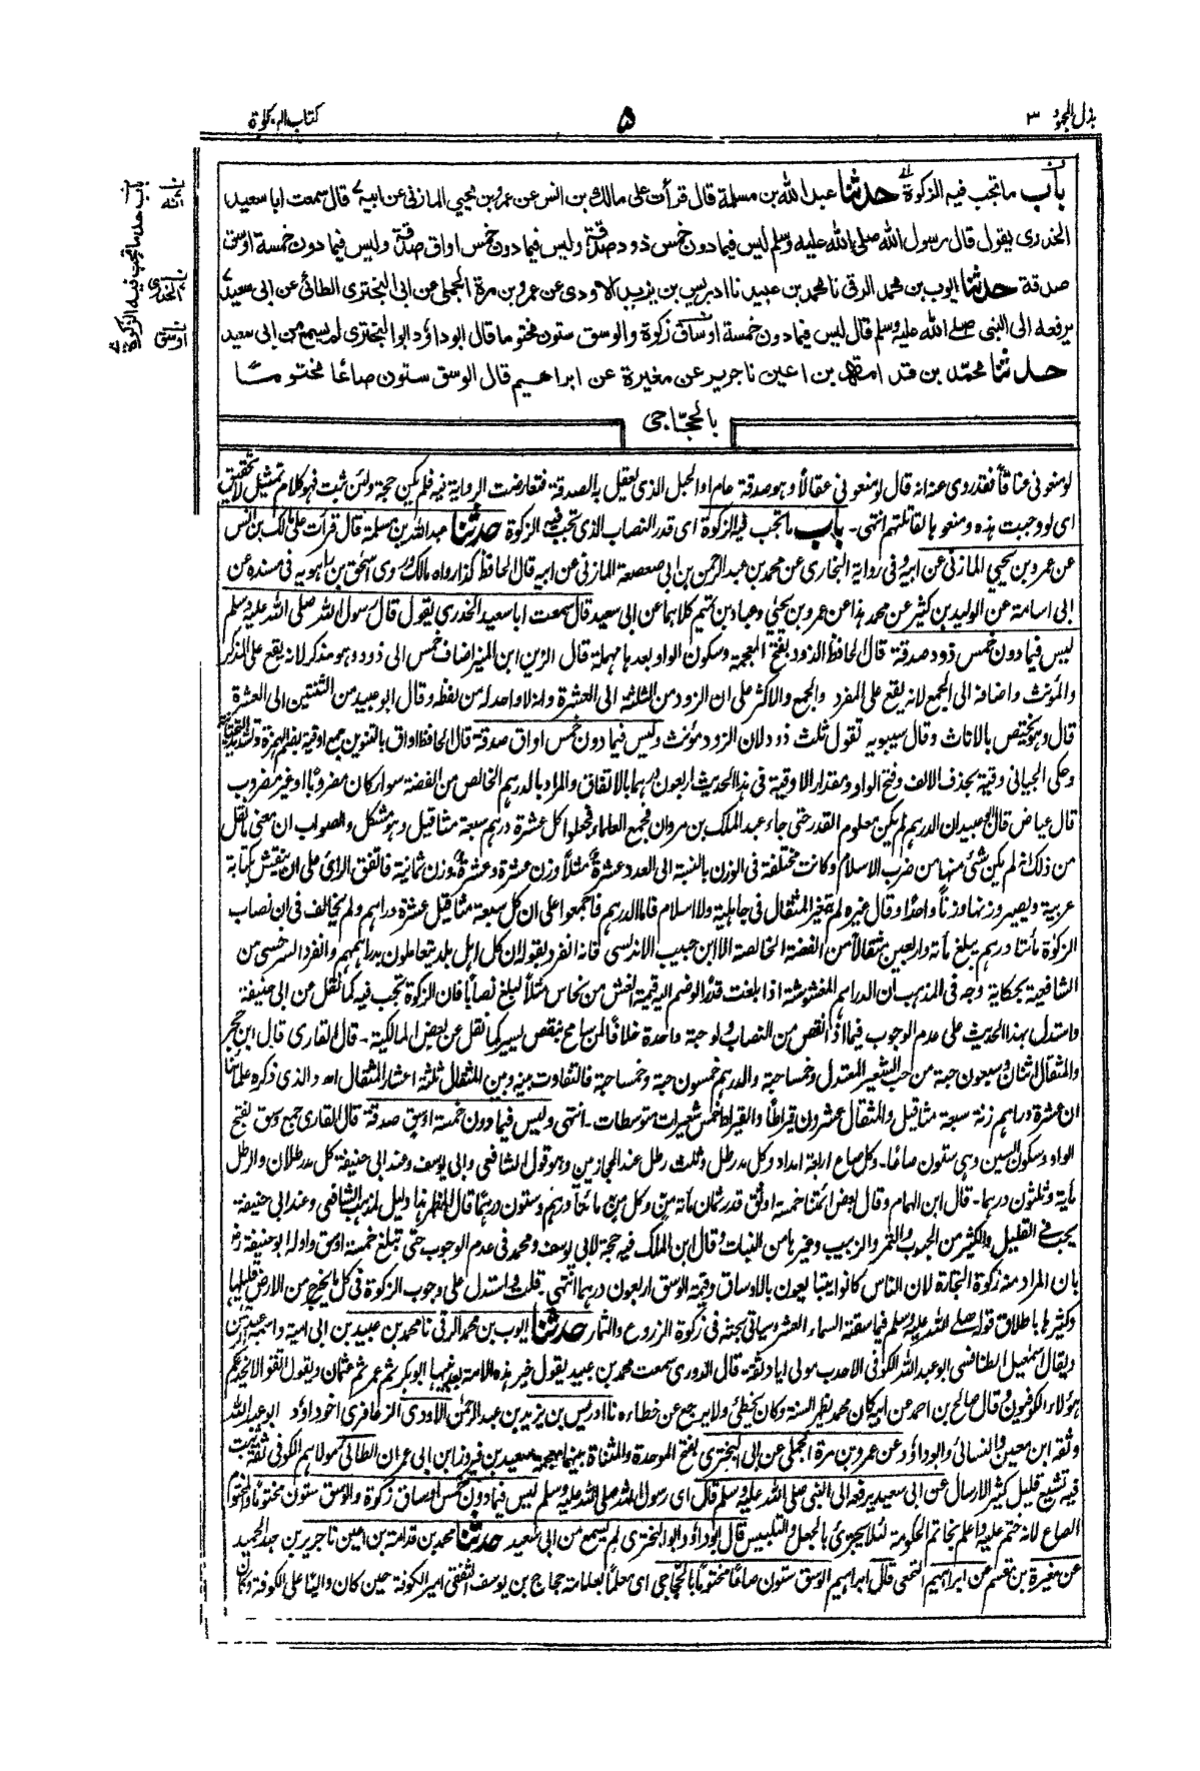 بذل المجهود ٣
٥
كتاب الزكوة
باب ما تجب فيه الزكوة حدثنا عبد الله بن مسلمة قال قرأت على مالك بن انس عن عمرو بن يحيي المازنى عن ابيه قال سمعت ابا سعيد
الخدرى يقول قال رسول الله صلى الله عليه وسلم ليس فيما دون خمس ذود صدقة وليس فيما دون خمس اواق صدقة وليس فيما دون خمسة اوسق
صدقة حدثنا ايوب بن محمد الرقى نا محمد بن عبيد نا ادريس بن يزيد الاودى عن عمرو بن مرة الجملى عن ابى البخترى الطائى عن ابى سعيد
يرفعه الى النبى صلے الله عليه وسلم قال ليس فيما دون خمسة اوساق زكوة والوسق ستون مختوما قال ابو داؤد ابو البخترى لم يسمع من ابى سعيد
حدثنا محمد بن قدامة بن اعين نا جرير عن مغيرة عن ابراهيم قال الوسق ستون صاعا مختوما
بالحجاجى
باب حد ما تجب فيه الزكوة
الخدرى
اوسق
لو منعونى عناقا فقد روى عنه انه قال لو منعونى عقالا وهو صدقة عام او الحبل الذى يعقل به الصدقة فتعارضت الرواية فيه فلم يكن حجة ولئن ثبت فهو كلام تمثيل لا تحقيق
اى لو وجبت هذه ومنعوها لقاتلتهم انتهى۔ باب ما تجب فيه الزكوة اى قدر النصاب الذى تجب فيه الزكوة حدثنا عبد الله بن مسلمة قال قرأت على مالك بن انس
عن عمرو بن يحيي المازنى عن ابيه وفى رواية البخارى عن محمد بن عبد الرحمن بن ابى صعصعة المازنى عن ابيه قال الحافظ كذا رواه مالك وروى اسحق بن راهويه فى مسنده عن
ابى اسامة عن الوليد بن كثير عن محمد هذا عن عمرو بن يحيي وعباد بن تميم كلاهما عن ابى سعيد قال سمعت ابا سعيد الخدرى يقول قال رسول الله صلى الله عليه وسلم
ليس فيما دون خمس ذود صدقة قال الحافظ الذود بفتح المعجمة وسكون الواو بعدها مهملة قال الزين ابن المنير اضاف خمس الى ذود وهو مذكر لانه يقع على المذكر
والمؤنث واضافه الى الجمع لانه يقع على المفرد والجمع والاكثر على ان الزود من الثلثة الى العشرة وانه لا واحد له من لفظه وقال ابو عبيد من الثنتين الى العشرة
قال وهو يختص بالاناث وقال سيبويه تقول ثلث ذود لان الزود مؤنث وليس فيما دون خمس اواق صدقة قال الحافظ اواق بالتنوين جمع اوقية بضم الهمزة وتشديد التحتانية
وحكى الجيانى وقية بحذف الالف وفتح الواو ومقدار الاوقية فى هذا الحديث اربعون درهما بالاتفاق والمراد بالدرهم الخالص من الفضة سواء كان مضروبا او غير مضروب
قال عياض قال ابو عبيد ان الدرهم لم يكن معلوم القدر حتى جاء عبد الملك بن مروان فجمع العلماء فجعلوا كل عشرة دراهم سبعة مثاقيل وهو مشكل والصواب ان معنى ما نقل
من ذلك انه لم يكن شئ منها من ضرب الاسلام وكانت مختلفة فى الوزن بالنسبة الى العدد عشرة مثلا وزن عشرة وعشرة وزن ثمانية فاتفق الرأى على ان ينقش بكتابة
عربية ويصير وزنها وزنا واحدا وقال غيره لم يتغير المثقال فى جاهلية ولا اسلام فاما الدرهم فاجمعوا على ان كل سبعة مثاقيل عشرة دراهم ولم يخالف فى ان نصاب
الزكوة مأتا درهم يبلغ مأة واربعين مثقالا من الفضة الخالصة الا ابن حبيب الاندلسى فانه انفرد بقوله ان كل اهل بلد يتعاملون بدراهمهم وانفرد السرخسى من
الشافعية بحكاية وجه فى المذهب ان الدراهم المغشوشة اذا بلغت قدرا لو ضم اليه قيمة الغش من نحاس مثلا لبلغ نصابا فان الزكوة تجب فيه كما نقل عن ابى حنيفة
واستدل بهذا الحديث على عدم الوجوب فيما اذا نقص من النصاب ولو حبة واحدة خلافا لمن سامح بنقص يسير كما نقل عن بعض المالكية۔ قال القارى قال ابن حجر
والمثقال اثنان وسبعون حبة من حب الشعير المعتدل وخمسا حبة والدرهم خمسون حبة وخمسا حبة فالتفاوت بينه وبين المثقال ثلثة اعشار المثقال اھ والذى ذكره علمائنا
ان عشرة دراهم زنة سبعة مثاقيل والمثقال عشرون قيراطا والقيراط خمس شعيرات متوسطات۔ انتهى وليس فيما دون خمسة اوسق صدقة قال القارى جمع وسق بفتح
الواو وسكون السين وهى ستون صاعا۔ وكل صاع اربعة امداد وكل مد رطل وثلث رطل عند الحجازيين وهو قول الشافعى وابى يوسف وعند ابى حنيفة كل مد رطلان والرطل
مأية وثلثون درهما۔ قال ابن الهمام وقال بعض ائمتنا خمسة اوسق قدر ثمان مأة من وكل من مائتا درهم وستون درهما قال المظهر هذا دليل لمذهب الشافعى وعند ابى حنيفة
يجب فى القليل والكثير من الحبوب والتمر والزبيب وغيرها من النبات وقال ابن الملك فيه حجة لابى يوسف ومحمد فى عدم الوجوب حتى تبلغ خمسة اوسق واوله ابو حنيفة رح
بان المراد منه زكوة التجارة لان الناس كانوا يتبايعون بالاوساق وقيمة الوسق اربعون درهما انتهى قلت واستدل على وجوب الزكوة فى كل ما يخرج من الارض قليلها
وكثيرها باطلاق قوله صلے الله عليه وسلم فيما سقته السماء العشر وسياتى بحثه فى زكوة الزروع والثمار حدثنا ايوب بن محمد الرقى نا محمد بن عبيد بن ابى امية واسمه عبد الرحمن
ويقال اسمعيل الطنافسى ابو عبد الله الكوفى الاحدب مولى اياد ثقة۔ قال الدورى سمعت محمد بن عبيد يقول خير هذه الامة بعد نبيها ابو بكر ثم عمر ثم عثمان ويقول اتقوا لا يخدعكم
هؤلاء الكوفيون وقال صالح بن احمد عن ابيه كان محمد يظهر السنة وكان يخطئ ولا يرجع عن خطاءه نا ادريس بن يزيد بن عبد الرحمن الاودى الزعافرى اخو داؤد ابو عبد الله
وثقه ابن معين والنسائى وابو داؤد عن عمرو بن مرة الجملى عن ابى البخترى بفتح الموحدة والمثناة بينهما معجمة سعيد بن فيروز ابن ابى عمران الطائى مولاهم الكوفى ثقة ثبت
فيه تشيع قليل كثير الارسال عن ابى سعيد يرفعه الى النبى صلى الله عليه وسلم قال اى رسول الله صلى الله عليه وسلم ليس فيما دون خمس اوساق زكوة والوسق ستون مختوما والمختوم
الصاع لانه ختم عليه واعلم بخاتم الحكومة لئلا يجترئ بالجعل والتلبيس قال ابو داؤد وابو البخترى لم يسمع من ابى سعيد حدثنا محمد بن قدامة بن اعين نا جرير بن عبد الحميد
عن مغيرة بن مقسم عن ابراهيم النخعى قال ابراهيم الوسق ستون صاعا مختوما بالحجاجى اى معلما بعلامة حجاج بن يوسف الثقفى امير الكوفة حين كان واليا على الكوفة وكان